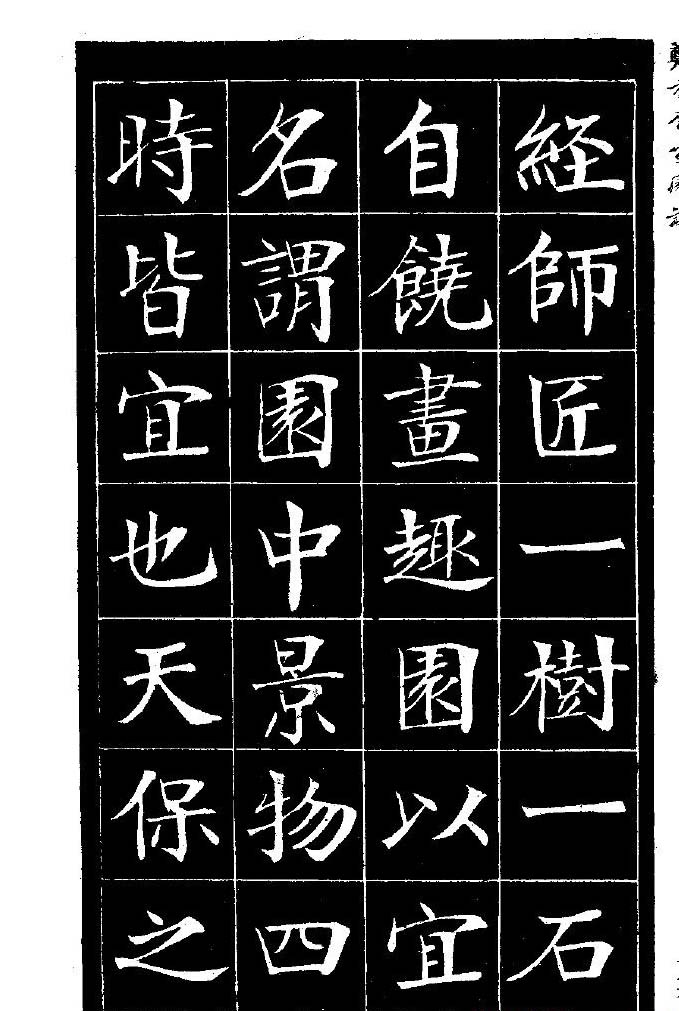 經師匠一樹一石
自饒畫趣園以宜
名謂園中景物四
時皆宜也天保之